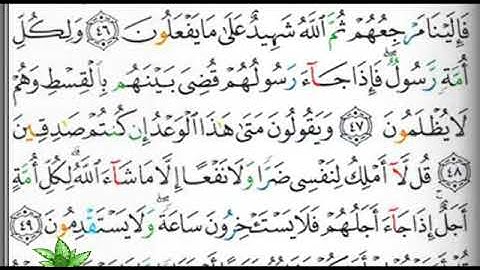 فَإِلَيْنَا مَرْجِعُهُمْ ثُمَّ ٱللَّهُ شَهِيدٌ عَلَىٰ مَا يَفْعَلُونَ ٤٦ وَلِكُلِّ
أُمَّةٍ رَّسُولٌ ۖ فَإِذَا جَآءَ رَسُولُهُمْ قُضِىَ بَيْنَهُم بِٱلْقِسْطِ وَهُمْ
لَا يُظْلَمُونَ ٤٧ وَيَقُولُونَ مَتَىٰ هَٰذَا ٱلْوَعْدُ إِن كُنتُمْ صَٰدِقِينَ
٤٨ قُل لَّآ أَمْلِكُ لِنَفْسِى ضَرًّا وَلَا نَفْعًا إِلَّا مَا شَآءَ ٱللَّهُ ۗ لِكُلِّ أُمَّةٍ
أَجَلٌ ۚ إِذَا جَآءَ أَجَلُهُمْ فَلَا يَسْتَـْٔخِرُونَ سَاعَةً ۖ وَلَا يَسْتَقْدِمُونَ ٤٩